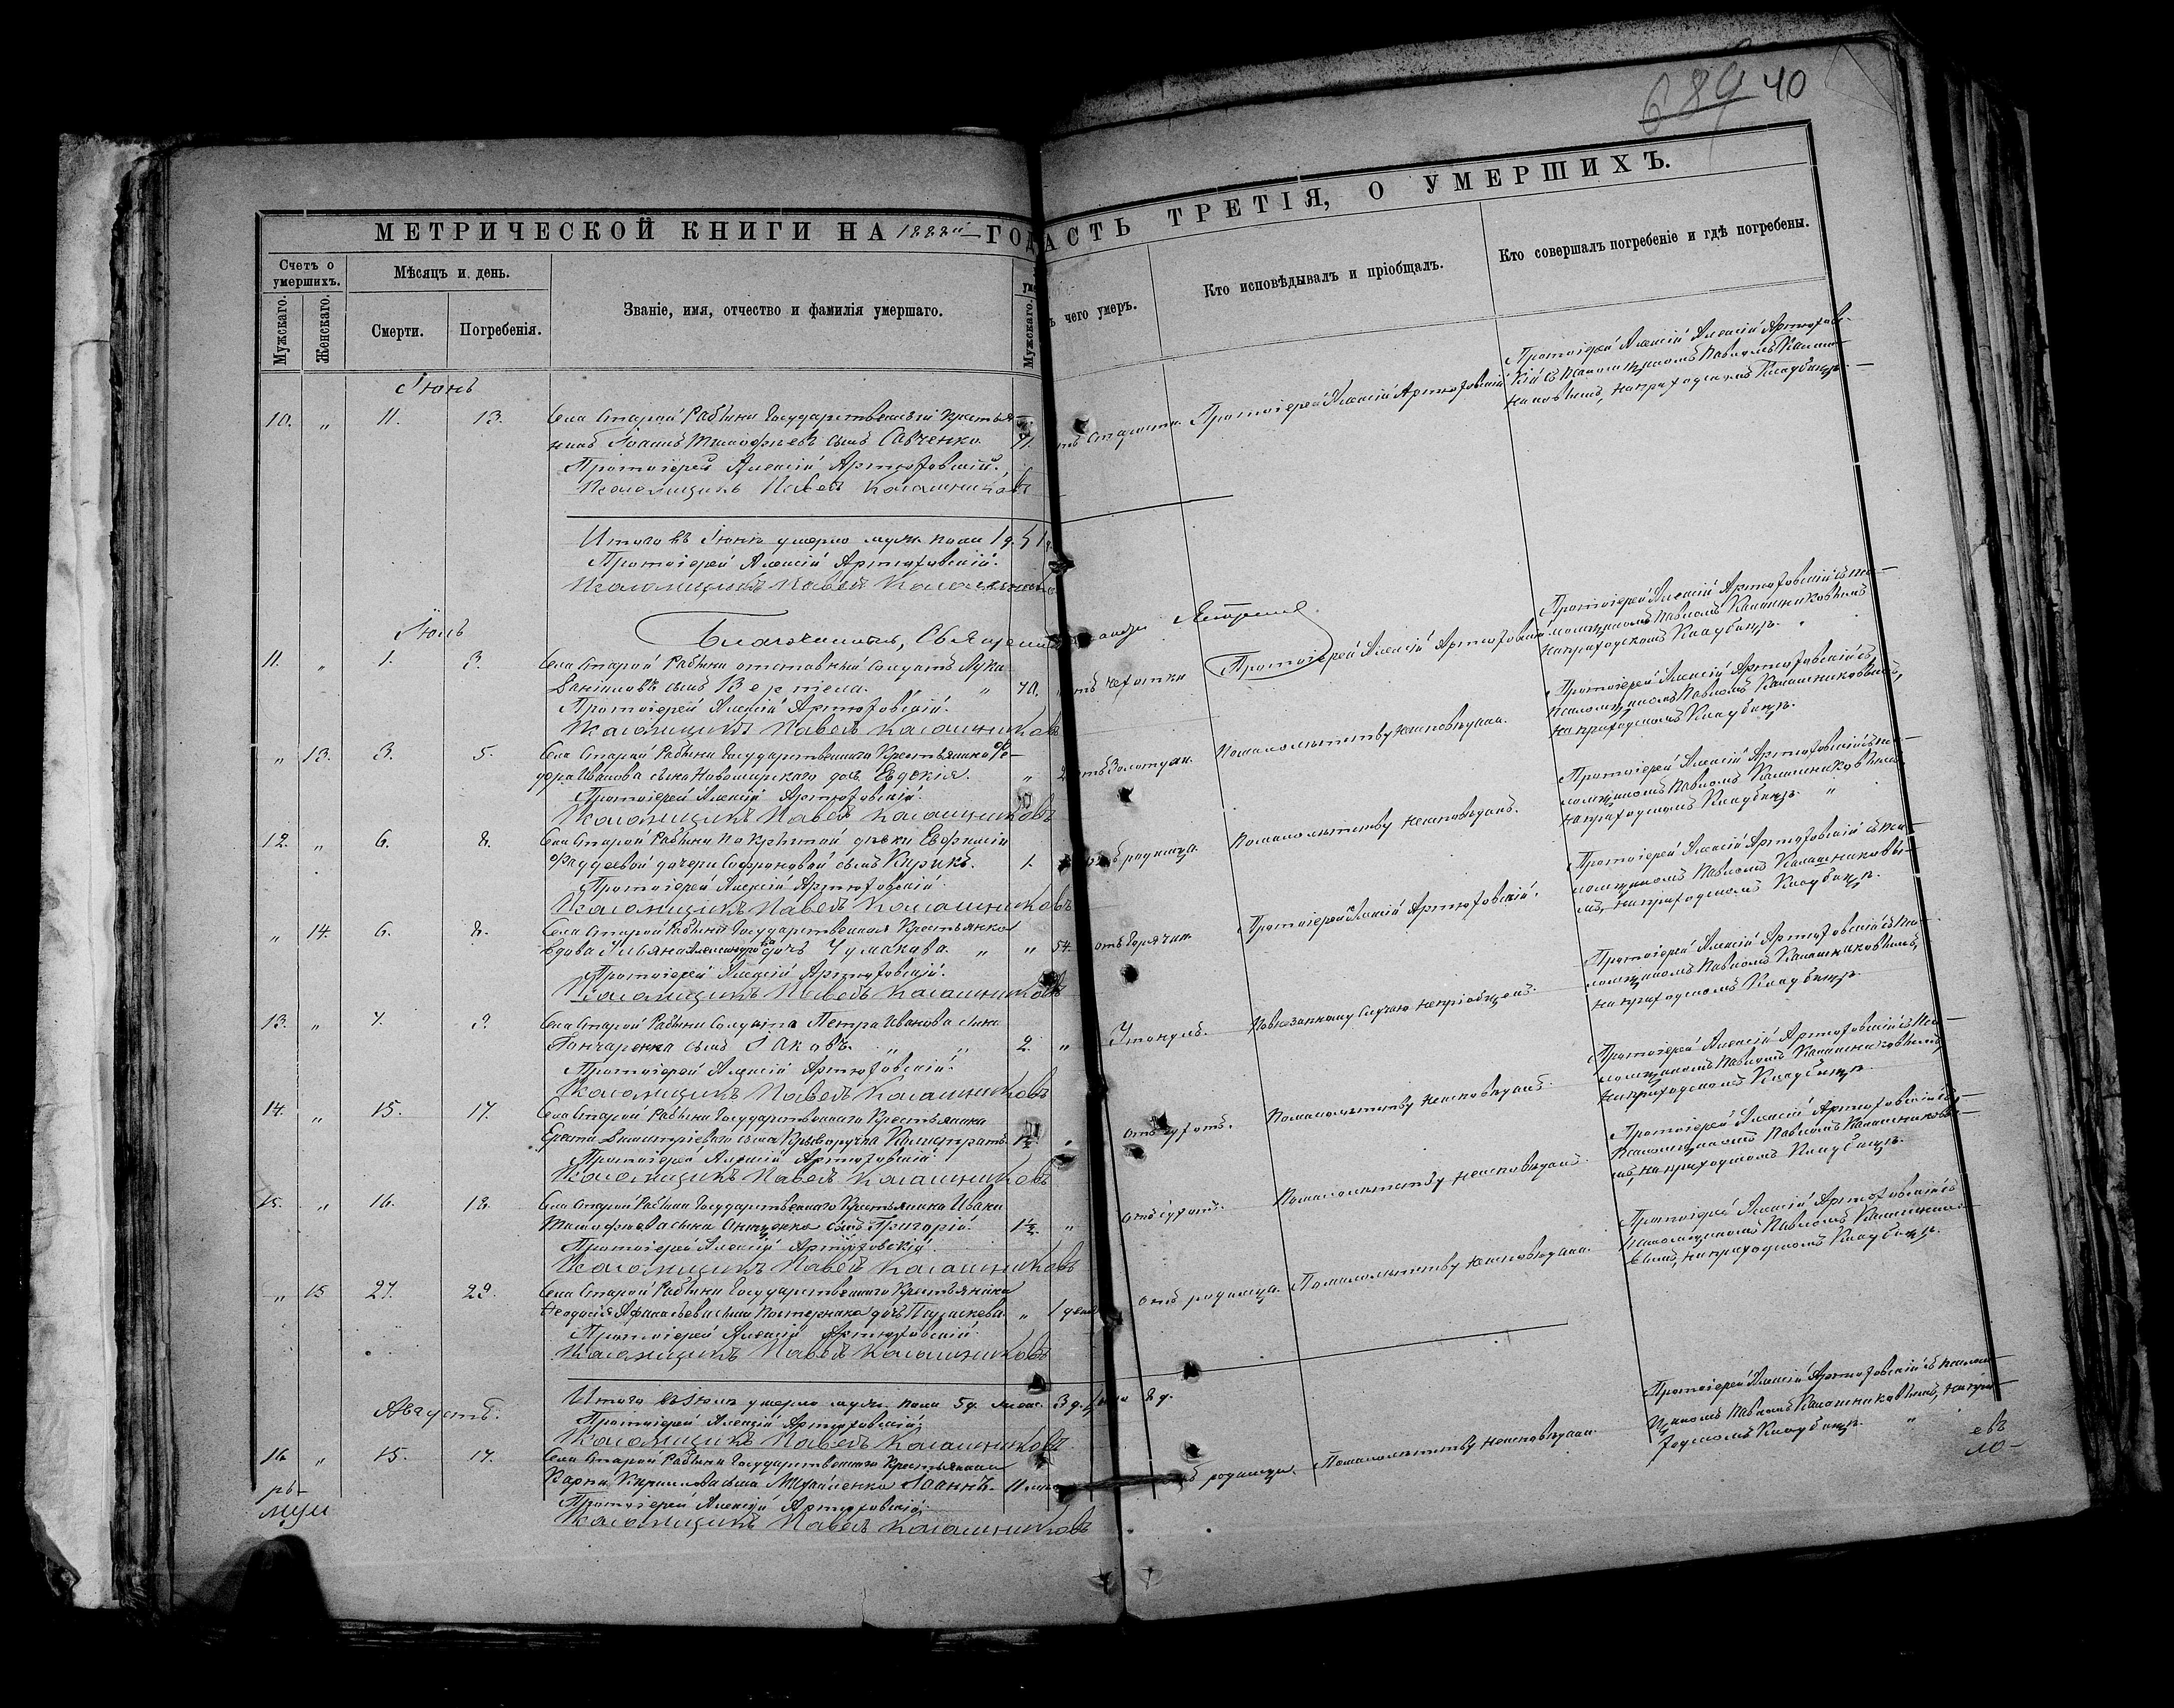 689 40
МЕТРИЧЕСКОЙ КНИГИ НА 1882й ГОД
АСТЬ ТРЕТІЯ, О УМЕРШИХЪ.
Счетъ о умершихъ.
Мужскаго.
Женскаго.
Мѣсяцъ и день.
Смерти.
Погребенія.
Званіе, имя, отчество и фамилія умершаго.
Мужскаго.
чего умеръ.
Кто исповѣдывалъ и пріобщалъ.
Кто совершалъ погребеніе и гдѣ погребены.
Іюнь
10. „ 11. 13. Села Старой Рабыни Государственный Крестья
нинъ Іоаннъ Тимофеевъ сынъ Савченко 71.
Протоіерей Алексій Артюховскій.
Псаломщикъ Павелъ Калашниковъ
старости. Протоіерей Алексій Артюховскій
Протоіерей Алексій Артюховс-
кій съ Псаломщикомъ Павломъ Калаш-
никовымъ, на приходскомъ Кладбищѣ.
Итого въ Іюнѣ умерло муж. пола 1 ч.
Протоіерей Алексій Артюховскій.
Псаломщикъ Павелъ Калашников
Благочинный, Священник
Іюль
11. „ 1. 3. Села Старой Рабыни отставный Солдатъ Лука
Даниловъ сынъ Вертела. „ 70.
Протоіерей Алексій Артюховскій.
Псаломщикъ Павелъ Калашниковъ
чахотки Протоіерей Алексій Артюховскій
Протоіерей Алексій Артюховскій съ Пса-
ломщикомъ Павломъ Калашниковымъ
на приходскомъ Кладбищѣ.
„ 13. 3. 5. Села Старой Рабыни Государственнаго Крестьянина Ѳе-
дора Иванова сына дочь Евдокія. „
Протоіерей Алексій Артюховскій.
Псаломщикъ Павелъ Калашниковъ
отъ Золотухи. По малолѣтству неисповѣдана.
Протоіерей Алексій Артюховскій съ
Псаломщикомъ Павломъ Калашниковымъ,
на приходскомъ Кладбищѣ.
12. „ 6. 8. Села Старой Рабыни дѣвки Евфиміи
Фаддеевой дочери Софроновой сынъ Кирикъ. 1.
Протоіерей Алексій Артюховскій.
Псаломщикъ Павелъ Калашниковъ
родимца. По малолѣтству неисповѣданъ.
Протоіерей Алексій Артюховскій съ Пса-
ломщикомъ Павломъ Калашниковымъ
на приходскомъ Кладбищѣ. „
„ 14. 6. 8. Села Старой Рабыни Государственная Крестьянка
вдова Ульяна Александрова дочь Чумакова. „ „ 54.
Протоіерей Алексій Артюховскій.
Псаломщикъ Павелъ Калашниковъ
отъ Горячки Протоіерей Алексій Артюховскій.
Протоіерей Алексій Артюховскій съ Пса-
ломщикомъ Павломъ Калашниковы-
мъ, на приходскомъ Кладбищѣ.
13. „ 7. 9. Села Старой Рабыни Солдата Петра Иванова сына
Гончаренка сынъ Іаковъ. „ „ 2. „
Протоіерей Алексій Артюховскій.
Псаломщикъ Павелъ Калашниковъ
Утонулъ. По внезапному случаю непріобщенъ.
Протоіерей Алексій Артюховскій съ Пса-
ломщикомъ Павломъ Калашниковымъ,
на приходскомъ Кладбищѣ.
14. „ 15. 17. Села Старой Рабыни Государственнаго Крестьянина
Ераста Димитріевого сына Криворучка Калистратъ. 1½. „
Протоіерей Алексій Артюховскій.
Псаломщикъ Павелъ Калашниковъ
отъ сухотъ. По малолѣтству неисповѣданъ.
Протоіерей Алексій Артюховскій съ Пса-
ломщикомъ Павломъ Калашниковымъ,
на приходскомъ Кладбищѣ.
15. „ 16. 18. Села Старой Рабыни Государственнаго Крестьянина Ивана
Тимофеева сына Онищенко сынъ Григорій. 1½. „
Протоіерей Алексій Артюховскій.
Псаломщикъ Павелъ Калашниковъ
отъ сухотъ. По малолѣтству неисповѣданъ.
Протоіерей Алексій Артюховскій съ
Псаломщикомъ Павломъ Калашниковы-
мъ, на приходскомъ Кладбищѣ.
„ 15 27. 29. Села Старой Рабыни Государственнаго Крестьянина
Ѳеодосія Афанасьева сына Костернаго дочь Параскева „ 1 день
Протоіерей Алексій Артюховскій.
Псаломщикъ Павелъ Калашниковъ
отъ родимца. По малолѣтству неисповѣдана.
Протоіерей Алексій Артюховскій съ
Псаломщикомъ Павломъ Калашнико-
вымъ, на приходскомъ Кладбищѣ.
Итого въ Іюлѣ умерло муж. пола 5 ч. женс. 3 ч. 8 ч.
Протоіерей Алексій Артюховскій.
Псаломщикъ Павелъ Калашниковъ
Августъ.
16 „ 15. 17. Села Старой Рабыни Государственнаго Крестьянина
Карпа Кириллова сына Іоаннъ. 11
Протоіерей Алексій Артюховскій.
Псаломщикъ Павелъ Калашниковъ
родимца. По малолѣтству неисповѣдан.
Протоіерей Алексій Артюховскій съ Псалом-
щикомъ Павломъ Калашниковымъ, на при-
ходскомъ Кладбищѣ. „